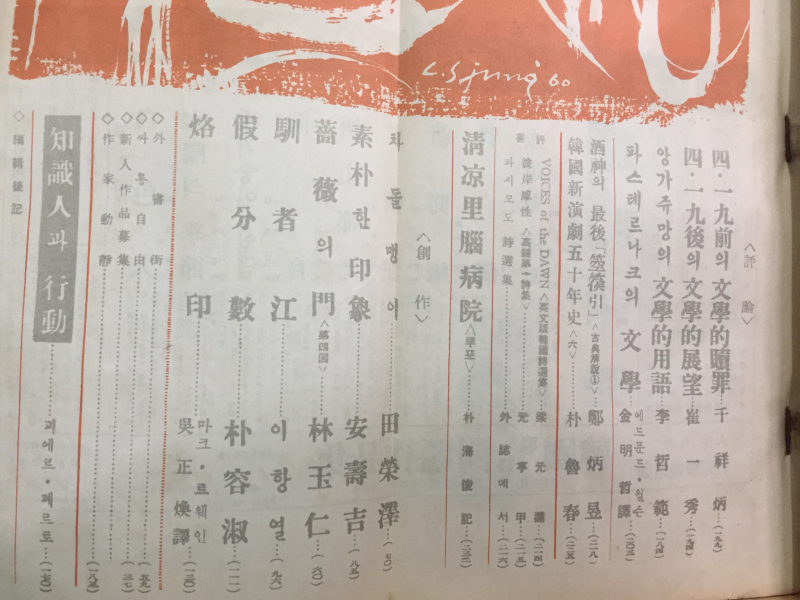 C.S.jung 60
〈評論〉
四・一九前의 文學的贖罪……千祥炳…(一九九)
四・一九後의 文學的展望……崔一秀…(一九四)
앙가쥬망의 文學的用語……李哲範…(一八四)
파스테르나크의 文學……에드몬드・윌슨 金明哲譯…(二〇五)
酒神의 最後「箜篌引」〈古典解說①〉…鄭炳昱…(二一八)
韓國新演劇五十年史〈六〉………朴魯春…(二三五)
許 VOICES of the DAWN〈英文版韓國詩選集〉…梁元達…(二一四)
書 彼岸感性〈高銀第一詩集〉……元亨甲…(二一五)
파시모도 詩選集……外誌에서…(二一六)
淸凉里腦病院〈루포〉……朴海俊記…(二三二)
〈創作〉
차돌맹이……田榮澤…(七〇)
素朴한 印象……安壽吉…(八五)
薔薇의 門〈第四回〉……林玉仁…(六〇)
馴者江……이항열…(九六)
假分數……朴容淑…(一一一)
烙印……마크・트웨인 吳正煥譯…(一三〇)
◇外書街
◇싸롱自由……(一五九)
◇新人作品募集……(一三七)
◇作家動靜……(一八三)
知識人과 行動……피에르・페르토…(一七〇)
◇編輯後記